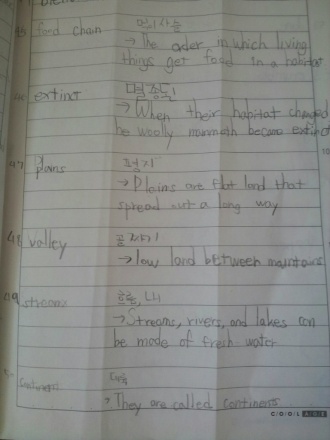 45 food chain 먹이사슬
→ The order in which living
things get food in a habitat
46 extinct 멸종된
→ When their habitat changed
he woolly mammoth became extinct
47 Plains 평지
→ Plains are flat land that
spread out a long way
48 valley 골짜기
→ low land between mountains
49 streams 흐름, 내
→ Streams, rivers, and lakes can
be made of fresh water
continent 대륙
→ They are called continents
COOL